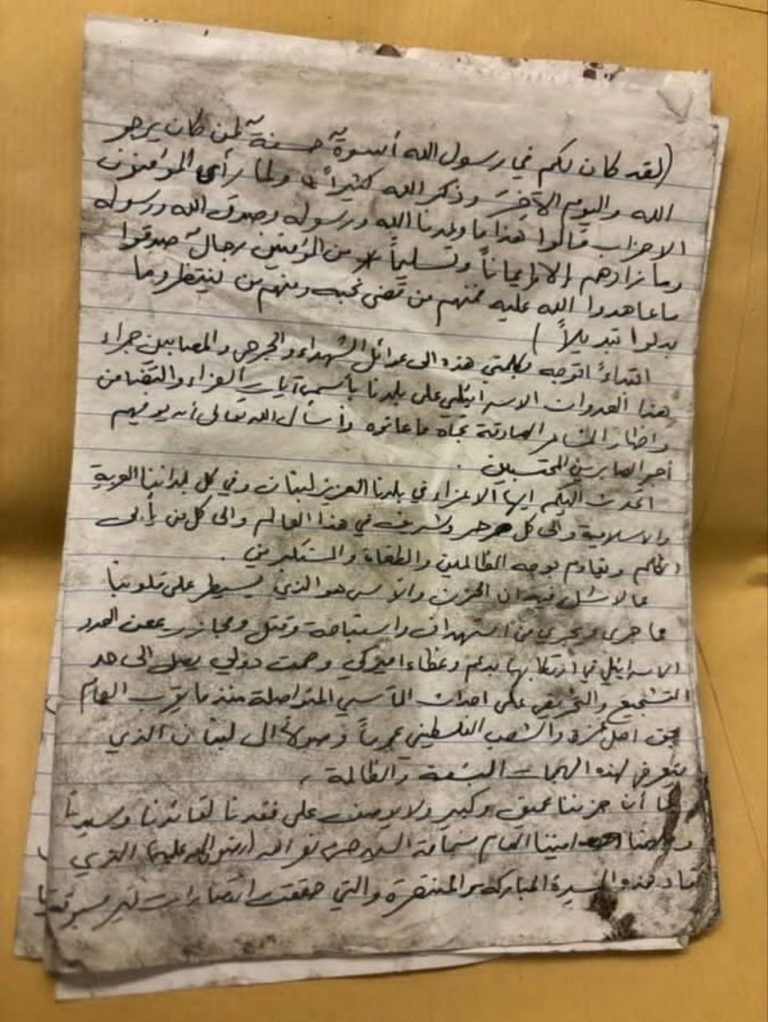 (لقد كان لكم في رسول الله أسوةٌ حسنةٌ لمن كان يرجو
الله واليوم الآخر وذكر الله كثيراً * ولما رأى المؤمنون
الاحزاب قالوا هذا ما وعدنا الله ورسوله وصدق الله ورسوله
وما زادهم إلا إيماناً وتسليماً * من المؤمنين رجالٌ صدقوا
ما عاهدوا الله عليه فمنهم من قضى نحبه ومنهم من ينتظر وما
بدلوا تبديلاً)
ابتداءً اتوجه بكلمتي هذه الى عوائل الشهداء والجرحى والمصابين جراء
هذا العدوان الاسرائيلي على بلدنا بأسمى آيات العزاء والتضامن
واظهار المشاعر الصادقة تجاه ما عانوه وأسأل الله تعالى أن يوفيهم
أجر الصابرين المحتسبين.
اتحدث اليكم ايها الاعزاء في بلدنا العزيز لبنان وفي كل بلداننا العربية
والاسلامية والى كل حر وشريف في هذا العالم والى كل من يأبى
الظلم ويقاوم بوجه الظالمين والطغاة والمستكبرين.
مما لا شك فيه ان الحزن والأسى هو الذي يسيطر على قلوبنا
مما جرى ويجري من استهداف واستباحة وقتل ومجازر يمعن العدو
الاسرائيلي في ارتكابها بدعم وغطاء اميركي وصمت دولي يصل الى حد
التشجيع والتحريض على احداث المآسي المتواصلة منذ ما يقرب العام
بحق اهل غزة والشعب الفلسطيني عموماً وصولاً الى لبنان الذي
يتعرض لهذه الهجمات البشعة والظالمة.
كما أن حزننا عميق وكبير ولا يوصف على فقدنا لقائدنا وسيدنا
اميننا العام سماحة السيد حسن نصر الله (رضوان الله عليه) الذي
قاد هذه المسيرة المباركة والمنتصرة والتي حققت انتصارات غير مسبوقة